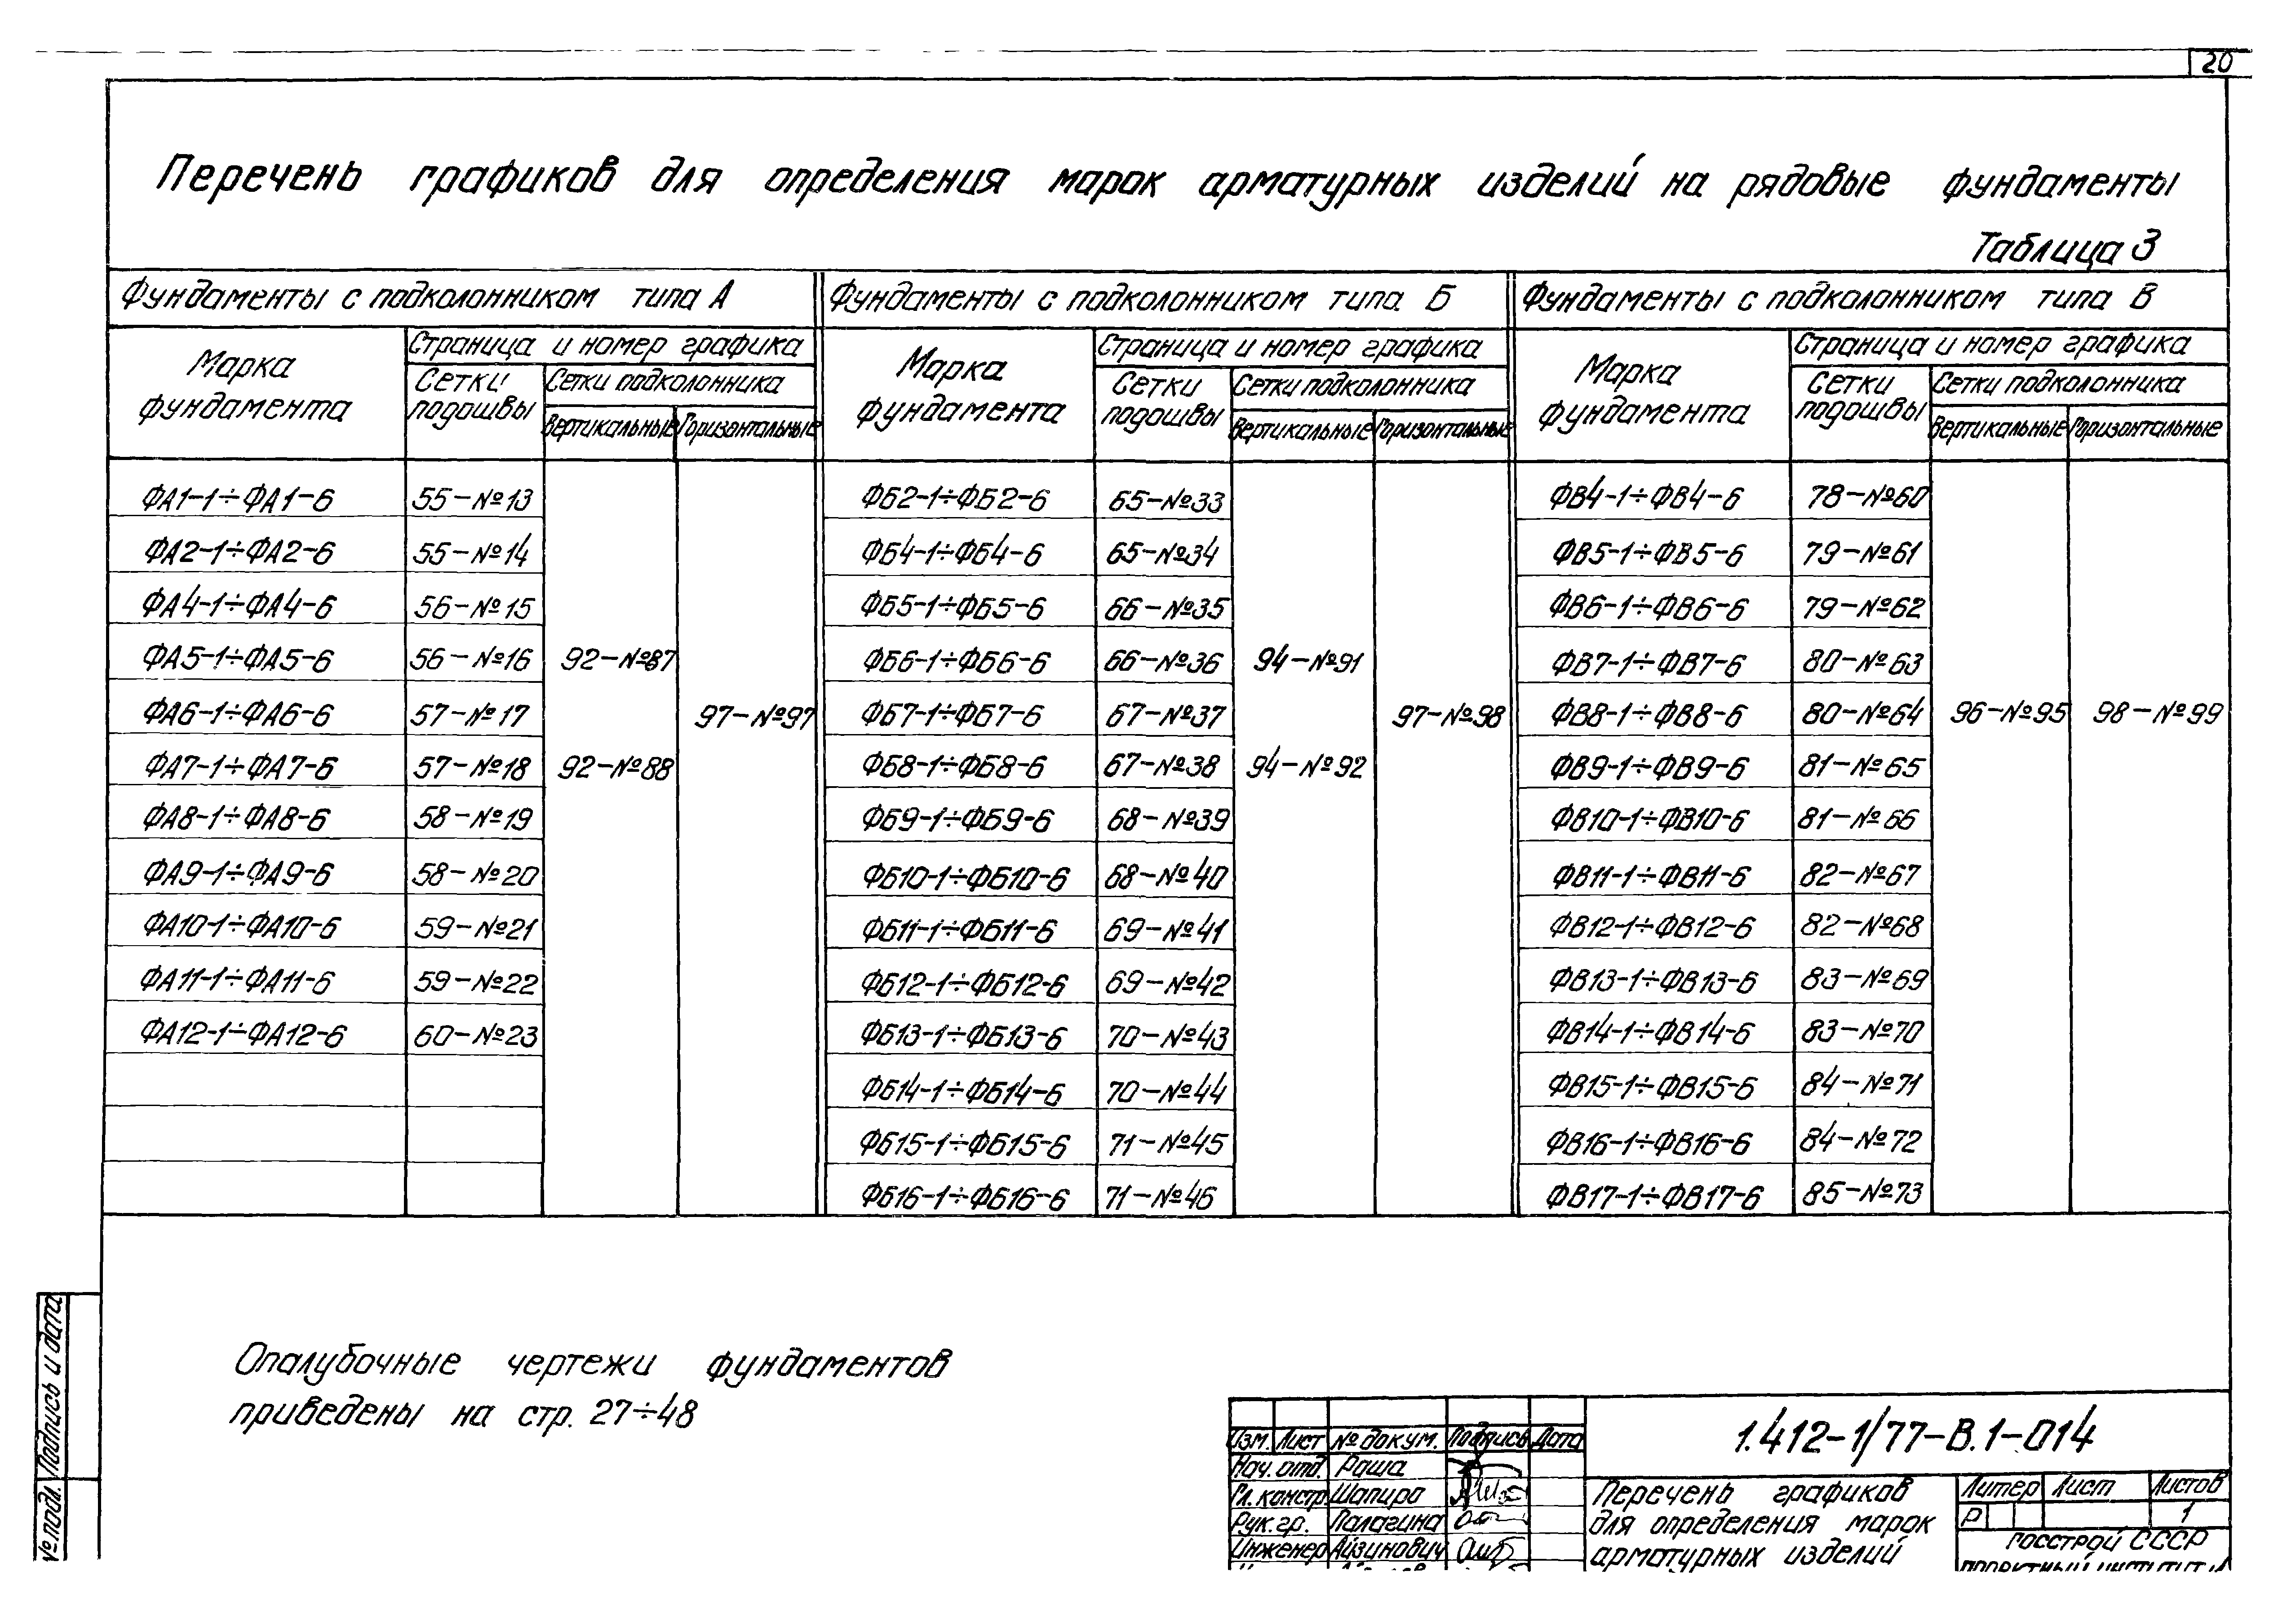 20
Перечень графиков для определения марок арматурных изделий на рядовые фундаменты
Таблица 3
Фундаменты с подколонником типа А
Марка фундамента
Страница и номер графика
Сетки подошвы
Сетки подколонника
Вертикальные
Горизонтальные
ФА1-1÷ФА1-6 55-№13
ФА2-1÷ФА2-6 55-№14
ФА4-1÷ФА4-6 56-№15
ФА5-1÷ФА5-6 56-№16 92-№87
ФА6-1÷ФА6-6 57-№17 97-№97
ФА7-1÷ФА7-6 57-№18 92-№88
ФА8-1÷ФА8-6 58-№19
ФА9-1÷ФА9-6 58-№20
ФА10-1÷ФА10-6 59-№21
ФА11-1÷ФА11-6 59-№22
ФА12-1÷ФА12-6 60-№23
Фундаменты с подколонником типа Б
Марка фундамента
Страница и номер графика
Сетки подошвы
Сетки подколонника
Вертикальные
Горизонтальные
ФБ2-1÷ФБ2-6 65-№33
ФБ4-1÷ФБ4-6 65-№34
ФБ5-1÷ФБ5-6 66-№35
ФБ6-1÷ФБ6-6 66-№36 94-№91
ФБ7-1÷ФБ7-6 67-№37 97-№98
ФБ8-1÷ФБ8-6 67-№38 94-№92
ФБ9-1÷ФБ9-6 68-№39
ФБ10-1÷ФБ10-6 68-№40
ФБ11-1÷ФБ11-6 69-№41
ФБ12-1÷ФБ12-6 69-№42
ФБ13-1÷ФБ13-6 70-№43
ФБ14-1÷ФБ14-6 70-№44
ФБ15-1÷ФБ15-6 71-№45
ФБ16-1÷ФБ16-6 71-№46
Фундаменты с подколонником типа В
Марка фундамента
Страница и номер графика
Сетки подошвы
Сетки подколонника
Вертикальные
Горизонтальные
ФВ4-1÷ФВ4-6 78-№60
ФВ5-1÷ФВ5-6 79-№61
ФВ6-1÷ФВ6-6 79-№62
ФВ7-1÷ФВ7-6 80-№63
ФВ8-1÷ФВ8-6 80-№64 96-№95 98-№99
ФВ9-1÷ФВ9-6 81-№65
ФВ10-1÷ФВ10-6 81-№66
ФВ11-1÷ФВ11-6 82-№67
ФВ12-1÷ФВ12-6 82-№68
ФВ13-1÷ФВ13-6 83-№69
ФВ14-1÷ФВ14-6 83-№70
ФВ15-1÷ФВ15-6 84-№71
ФВ16-1÷ФВ16-6 84-№72
ФВ17-1÷ФВ17-6 85-№73
Опалубочные чертежи фундаментов
приведены на стр. 27÷48
№ подл. Подпись и дата
Изм. Лист № докум. Подпись Дата
Нач. отд. Раша
Гл. констр. Шапиро
Рук. гр. Палагина
Инженер Айзинович
1.412-1/77-В.1-014
Перечень графиков
для определения марок
арматурных изделий
Литер Лист Листов
Р 1
Госстрой СССР